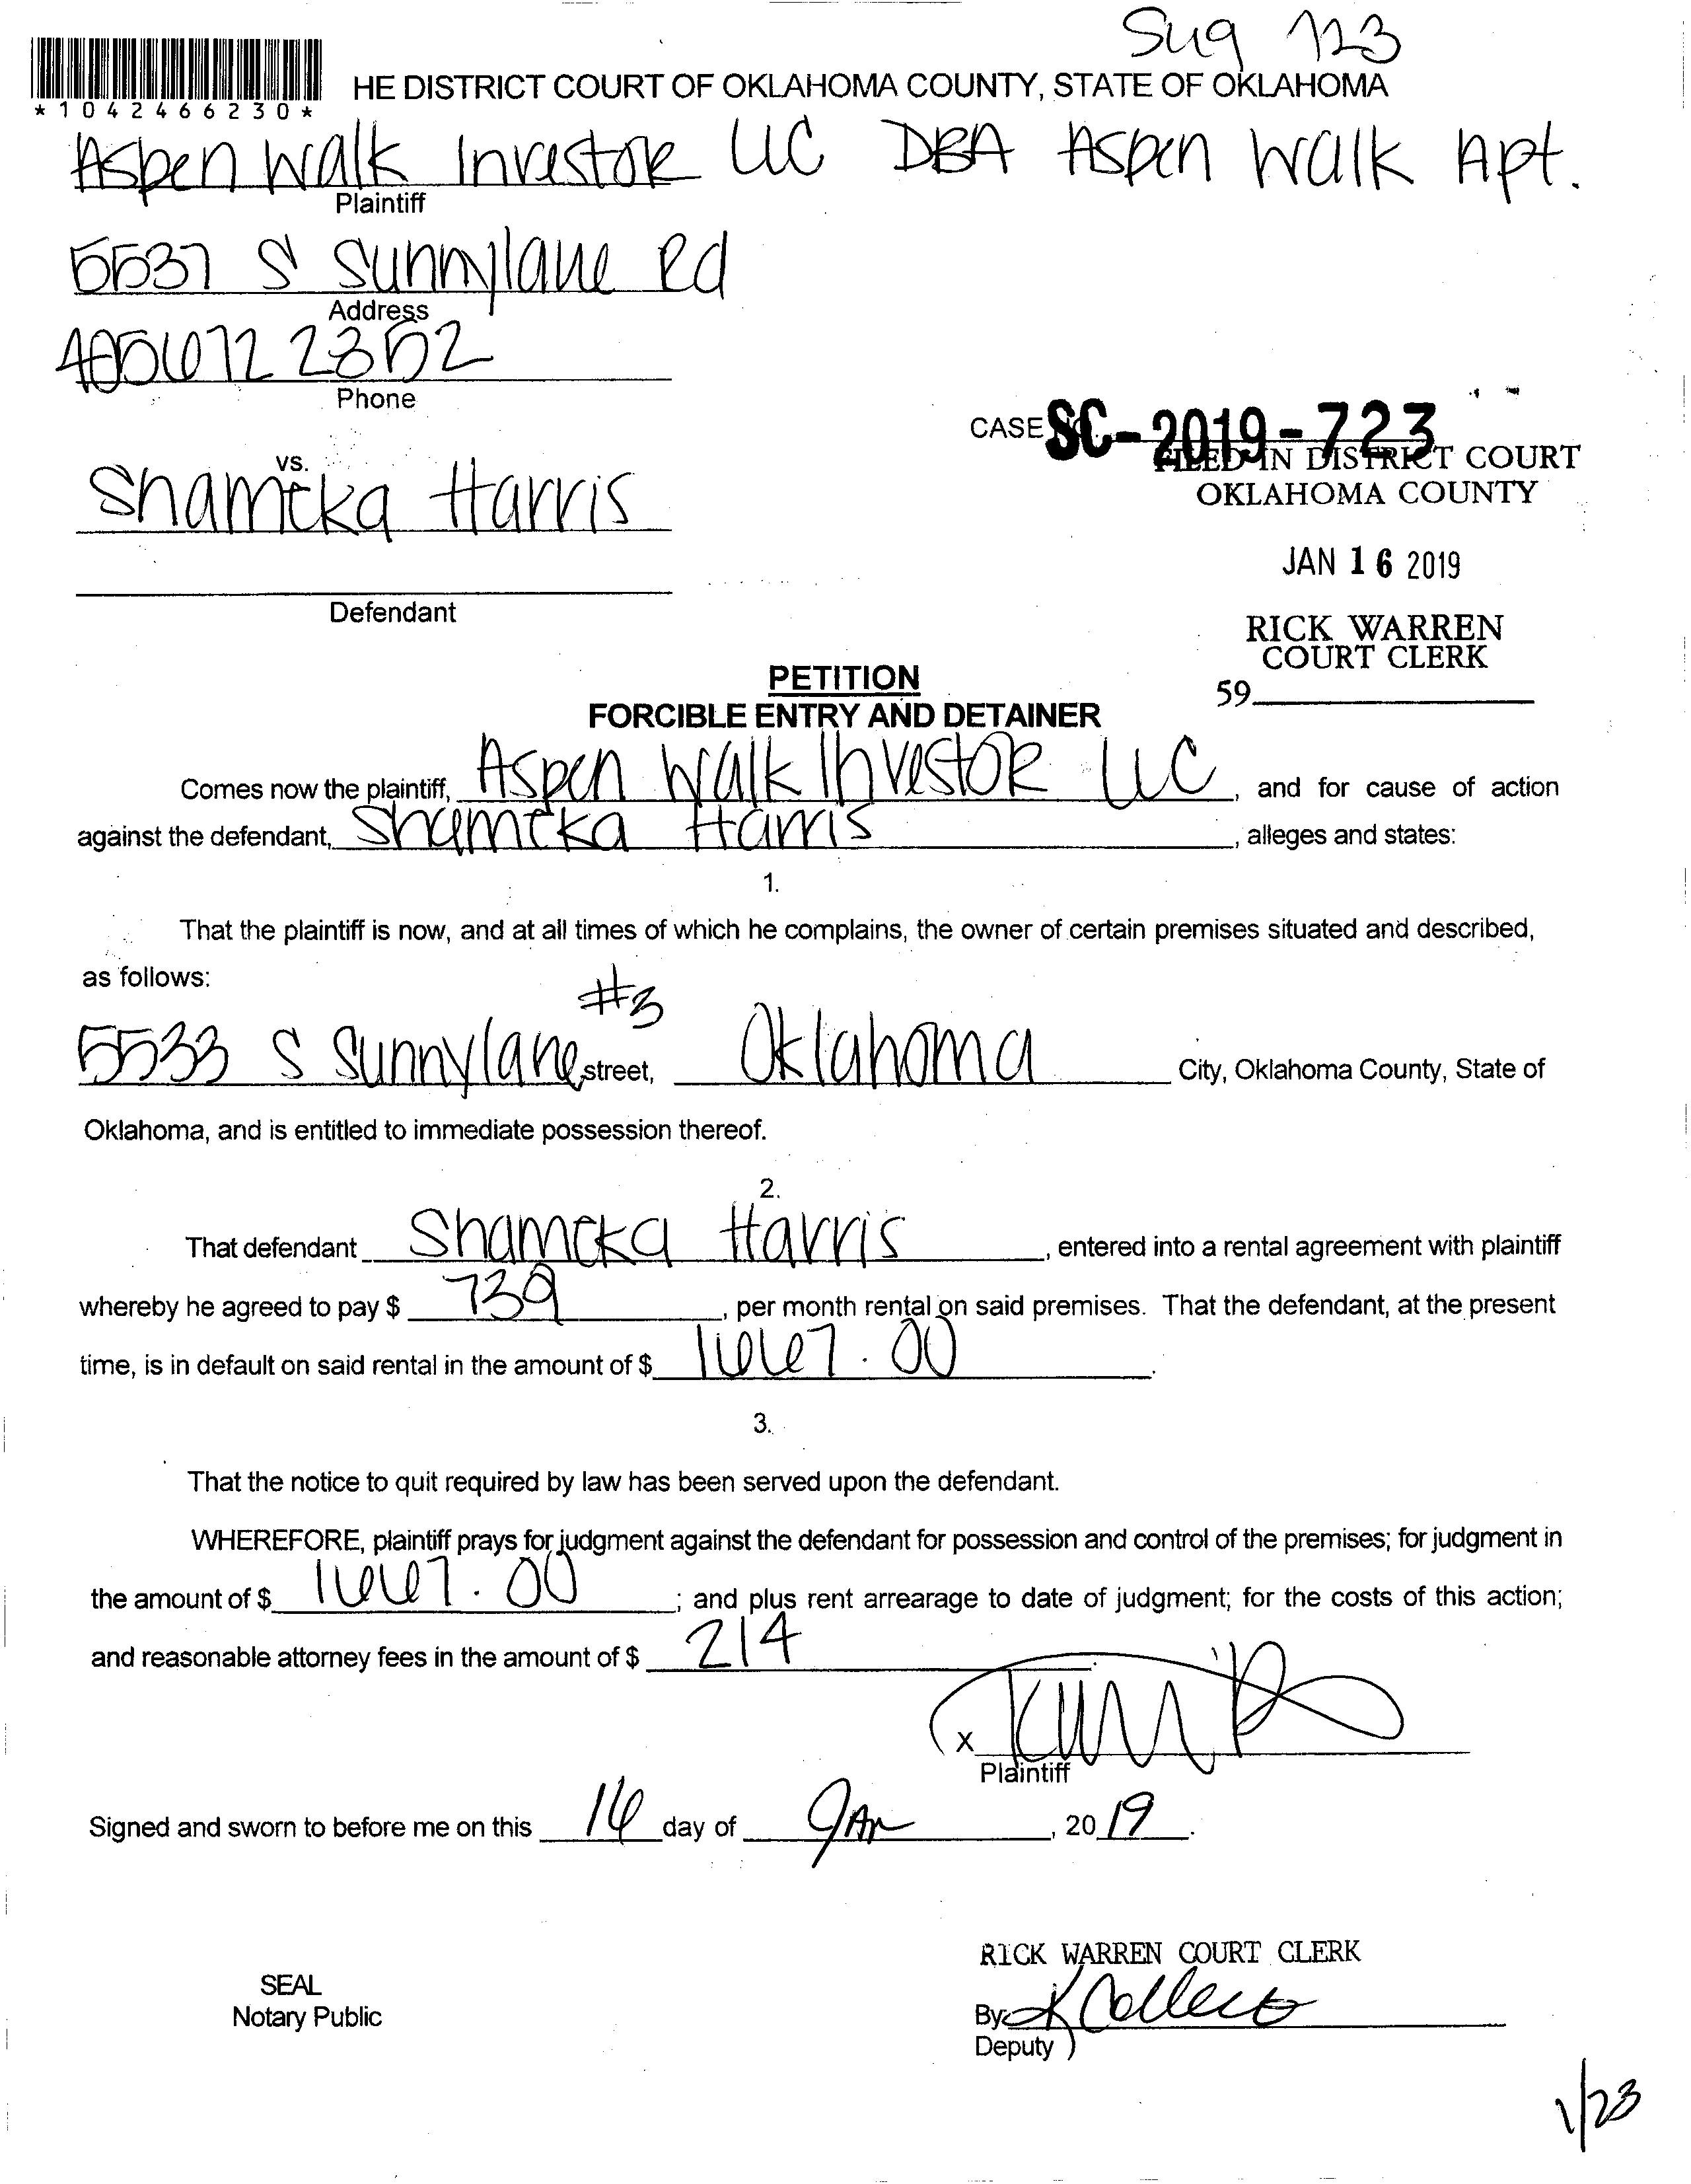 HE DISTRICT COURT OF OKLAHOMA COUNTY, STATE OF OKLAHOMA
*1042466230*
Aspen Walk Investor LLC DBA Aspen Walk Apt.
Plaintiff
5537 S Sunnylane Rd
Address
405 672 2352
Phone
CASE NO. SC-2019-723
vs.
FILED IN DISTRICT COURT
OKLAHOMA COUNTY
Shameka Harris
JAN 16 2019
Defendant
RICK WARREN
COURT CLERK
59
PETITION
FORCIBLE ENTRY AND DETAINER
Comes now the plaintiff, Aspen Walk Investor LLC, and for cause of action
against the defendant, Shameka Harris, alleges and states:
1.
That the plaintiff is now, and at all times of which he complains, the owner of certain premises situated and described,
as follows:
#3
5533 S Sunnylane street, Oklahoma City, Oklahoma County, State of
Oklahoma, and is entitled to immediate possession thereof.
2.
That defendant Shameka Harris, entered into a rental agreement with plaintiff
whereby he agreed to pay $ 739, per month rental on said premises. That the defendant, at the present
time, is in default on said rental in the amount of $ 1667.00.
3.
That the notice to quit required by law has been served upon the defendant.
WHEREFORE, plaintiff prays for judgment against the defendant for possession and control of the premises; for judgment in
the amount of $ 1667.00; and plus rent arrearage to date of judgment; for the costs of this action;
and reasonable attorney fees in the amount of $ 214.
X
Plaintiff
Signed and sworn to before me on this 16 day of Jan, 2019.
RICK WARREN COURT CLERK
SEAL
Notary Public
By
Deputy
1/23